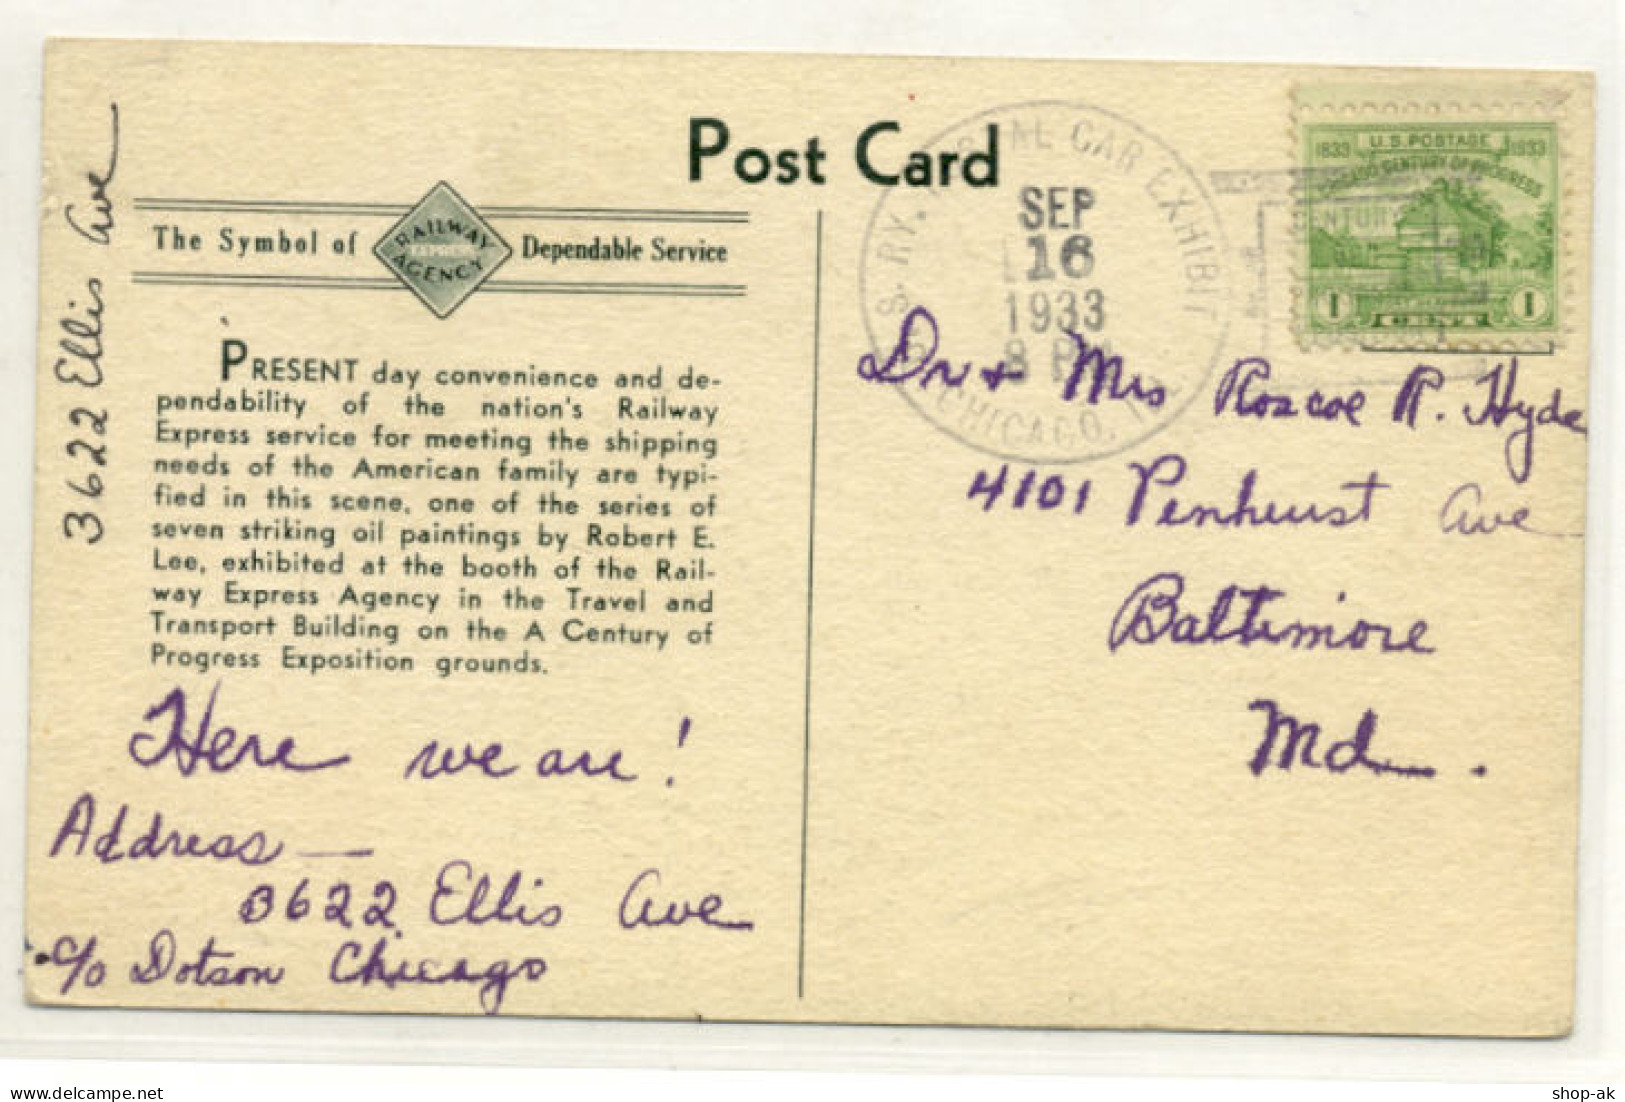 Post Card
The Symbol of
RAILWAY
EXPRESS
AGENCY
Dependable Service
PRESENT day convenience and de-
pendability of the nation's Railway
Express service for meeting the shipping
needs of the American family are typi-
fied in this scene, one of the series of
seven striking oil paintings by Robert E.
Lee, exhibited at the booth of the Rail-
way Express Agency in the Travel and
Transport Building on the A Century of
Progress Exposition grounds.
Here we are!
Address —
3622 Ellis Ave
c/o Dotson Chicago
3622 Ellis Ave
U.S. RY. POSTAL CAR EXHIBIT
SEP
16
1933
8 PM
CHICAGO, ILL.
U.S. POSTAGE
1833 1933
CHICAGO CENTURY OF PROGRESS
1 CENT 1
Dr + Mrs Roscoe R. Hyde
4101 Penhurst Ave
Baltimore
Md.
shop-ak